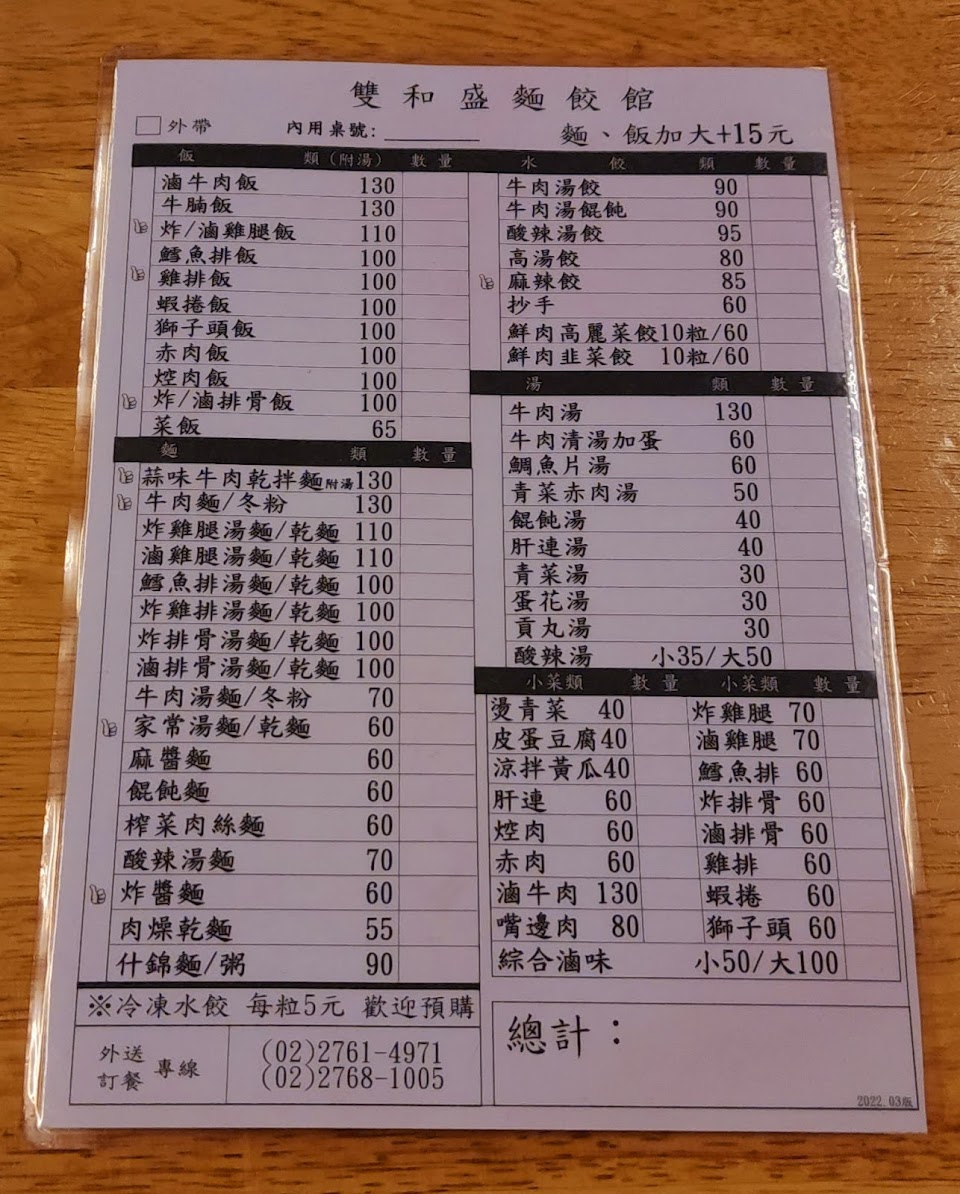 雙和盛麵餃館
外帶 內用桌號: 麵、飯加大+15元
飯 類(附湯) 數量
滷牛肉飯 130
牛腩飯 130
炸/滷雞腿飯 110
鱈魚排飯 100
雞排飯 100
蝦捲飯 100
獅子頭飯 100
赤肉飯 100
焢肉飯 100
炸/滷排骨飯 100
菜飯 65
麵 類 數量
蒜味牛肉乾拌麵附湯130
牛肉麵/冬粉 130
炸雞腿湯麵/乾麵 110
滷雞腿湯麵/乾麵 110
鱈魚排湯麵/乾麵 100
炸雞排湯麵/乾麵 100
炸排骨湯麵/乾麵 100
滷排骨湯麵/乾麵 100
牛肉湯麵/冬粉 70
家常湯麵/乾麵 60
麻醬麵 60
餛飩麵 60
榨菜肉絲麵 60
酸辣湯麵 70
炸醬麵 60
肉燥乾麵 55
什錦麵/粥 90
※冷凍水餃 每粒5元 歡迎預購
外送訂餐 專線
(02)2761-4971
(02)2768-1005
水餃類 數量
牛肉湯餃 90
牛肉湯餛飩 90
酸辣湯餃 95
高湯餃 80
麻辣餃 85
抄手 60
鮮肉高麗菜餃10粒/60
鮮肉韭菜餃 10粒/60
湯 類 數量
牛肉湯 130
牛肉清湯加蛋 60
鯛魚片湯 60
青菜赤肉湯 50
餛飩湯 40
肝連湯 40
青菜湯 30
蛋花湯 30
貢丸湯 30
酸辣湯 小35/大50
小菜類 數量 小菜類 數量
燙青菜 40 炸雞腿 70
皮蛋豆腐40 滷雞腿 70
涼拌黃瓜40 鱈魚排 60
肝連 60 炸排骨 60
焢肉 60 滷排骨 60
赤肉 60 雞排 60
滷牛肉 130 蝦捲 60
嘴邊肉 80 獅子頭 60
綜合滷味 小50/大100
總計：
2022.03版